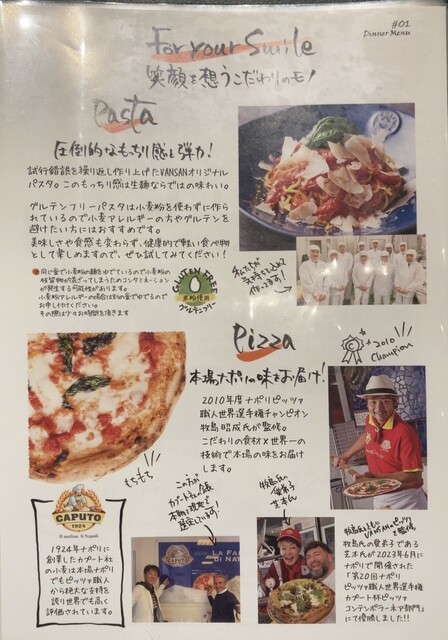 #01
Dinner Menu
For your Smile
笑顔を想うこだわりのモノ
Pasta
圧倒的なもちり感と弾力!
試行錯誤を繰り返し作り上げたVANSANオリジナル
パスタ。このもっちり感は生麺ならではの味わい。
グルテンフリーパスタは小麦粉を使わずに作ら
れているので小麦アレルギーの方やグルテンを
避けたい方にはおすすめです。
美味しさや食感も変わらず、健康的で軽い食べ物
として楽しめますので、ぜひ試してみてください!
同じ釜で小麦粉の麺をゆでているので小麦粉の
残留物が混ざってしまうためコンタミネーション
が発生する可能性があります。
小麦粉アレルギーのお客様は別の釜でゆでるので
お申し付けください。
その際は少々お時間を頂きます
GLUTEN FREE
米粉使用
グルテンフリー
私たちが
作ってます!
Pizza
+2010
Champion
本場ナポリの味をお届け!
2010年度ナポリピッツァ
職人世界選手権チャンピオン
牧島昭成氏が監修。
こだわりの食材×世界一の
技術で本場の味をお届け
します。
もちもち
CAPUTO
1924
Il mulino di Napoli
1924年ナポリに
創業したカプート社
の小麦は本場ナポリ
でもピッツァ職人
から絶大な支持を
誇り世界でも高く
評価されています。
CAPUTO
LA FA
DI NA
牧島氏
愛弟子
芝本氏
牧島氏といっしょに
VANSANピッツァを監修、
牧島氏の愛弟子である
芝本氏が2023年6月に
ナポリで開催された
「第20回ナポリ
ピッツァ職人世界選手権
カプート杯ピッツァ
コンテンポラーネア部門」
にて優勝しました!!